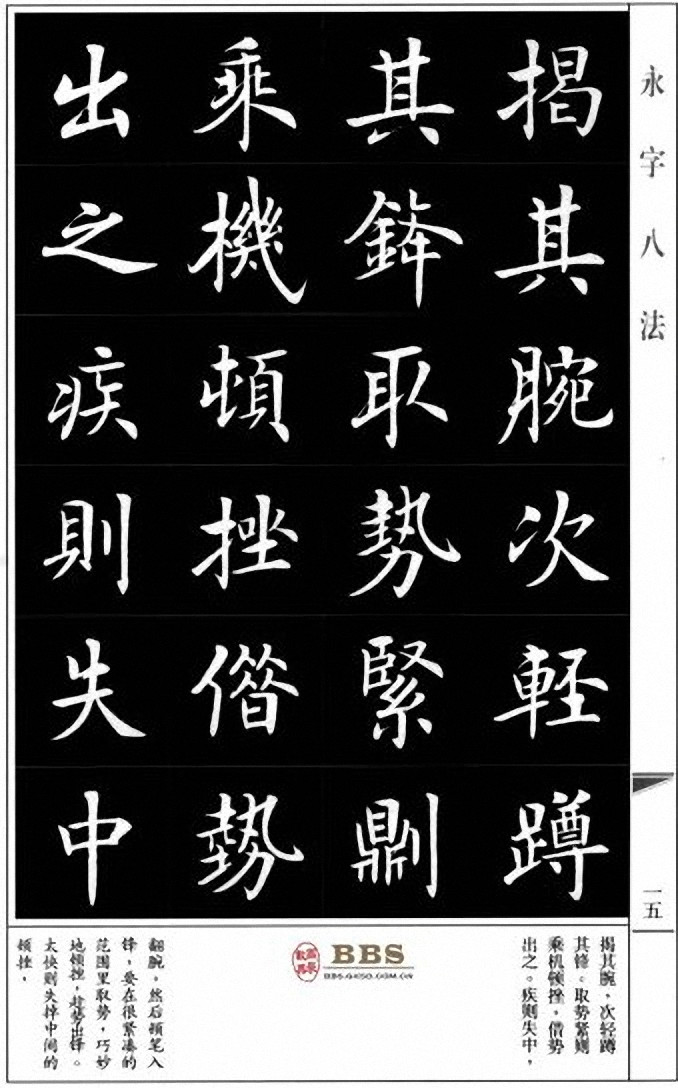 永字八法
一五
揭其腕次軽蹲
其鋒取勢緊則
乘機頓挫僣勢
出之疾則失中
揭其腕，次轻蹲
其锋。取势紧则
乘机顿挫，借势
出之。疾则失中，
翻腕，然后顿笔入
锋，要在很紧凑的
范围里取势，巧妙
地顿挫，趁势出锋。
太快则失掉中间的
顿挫。
BBS